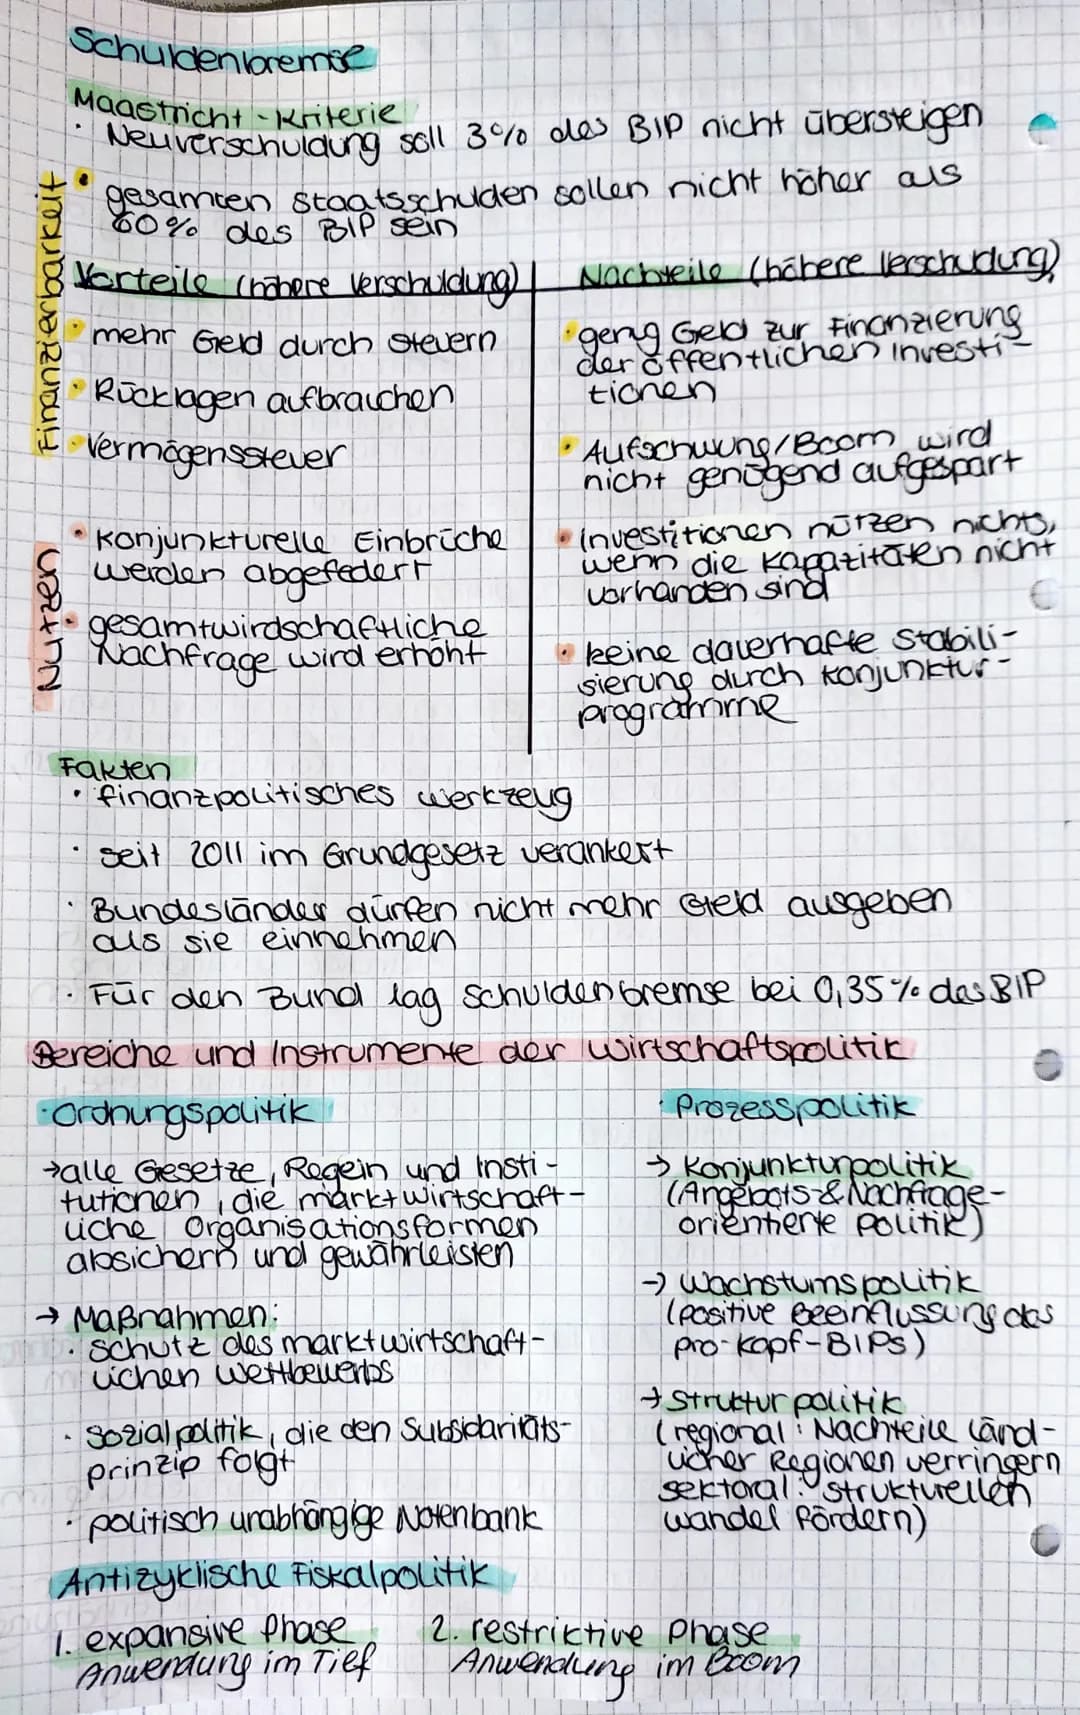 Schuldenbremse
Maastricht-Kriterie
· Neuverschuldung soll 3% des BIP nicht übersteigen
· gesamten Staatsschulden sollen nicht höher als
60% des BIP sein
Finanzierbarkeit
Vorteile (höhere Verschuldung)
· mehr Geld durch Steuern
· Rücklagen aufbrauchen
· Vermögenssteuer
Nutzen
· Konjunkturelle Einbrüche
werden abgefedert
· gesamtwirdschaftliche
Nachfrage wird erhöht
Nachteile (höhere Verschudung)
· genug Geld zur Finanzierung
der öffentlichen Investi-
tionen
· Aufschwung/Boom wird
nicht genügend aufgespart
· Investitionen nützen nichts,
wenn die Kapazitäten nicht
vorhanden sind
· keine dauerhafte Stabili-
sierung durch Konjunktur-
programme
Fakten
· finanzpolitisches Werkzeug
· seit 2011 im Grundgesetz verankert
· Bundesländer dürfen nicht mehr Geld ausgeben
als sie einnehmen
· Für den Bund lag Schuldenbremse bei 0,35% des BIP
Bereiche und Instrumente der Wirtschaftspolitik
· Ordnungspolitik
→ alle Gesetze, Regeln und Insti-
tutionen, die marktwirtschaft-
liche Organisationsformen
absichern und gewährleisten
→ Maßnahmen:
· Schutz des marktwirtschaft-
lichen Wettbewerbs
· Sozialpolitik, die den Subsidaritäts-
prinzip folgt
· politisch unabhängige Notenbank
· Prozesspolitik
→ Konjunkturpolitik
(Angebots- & Nachfrage-
orientierte Politik)
→ Wachstumspolitik
(positive Beeinflussung des
pro-Kopf-BIPs)
→ Strukturpolitik
(regional: Nachteile länd-
licher Regionen verringern
sektoral: strukturellen
Wandel fördern)
Antizyklische Fiskalpolitik
1. expansive Phase
Anwendung im Tief
2. restriktive Phase
Anwendung im Boom